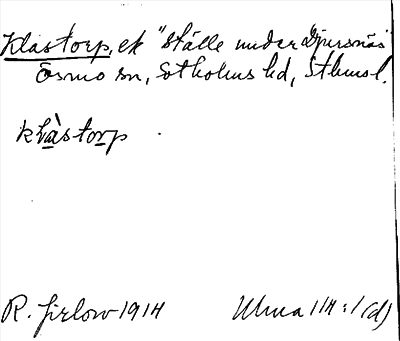 Klastorp, ek "ställe under Djursnäs"
Ösmo sn, Sotholms hd, Sthms l.
klàstorp
R. Jirlow 1914 Ulma 114:1 (d)